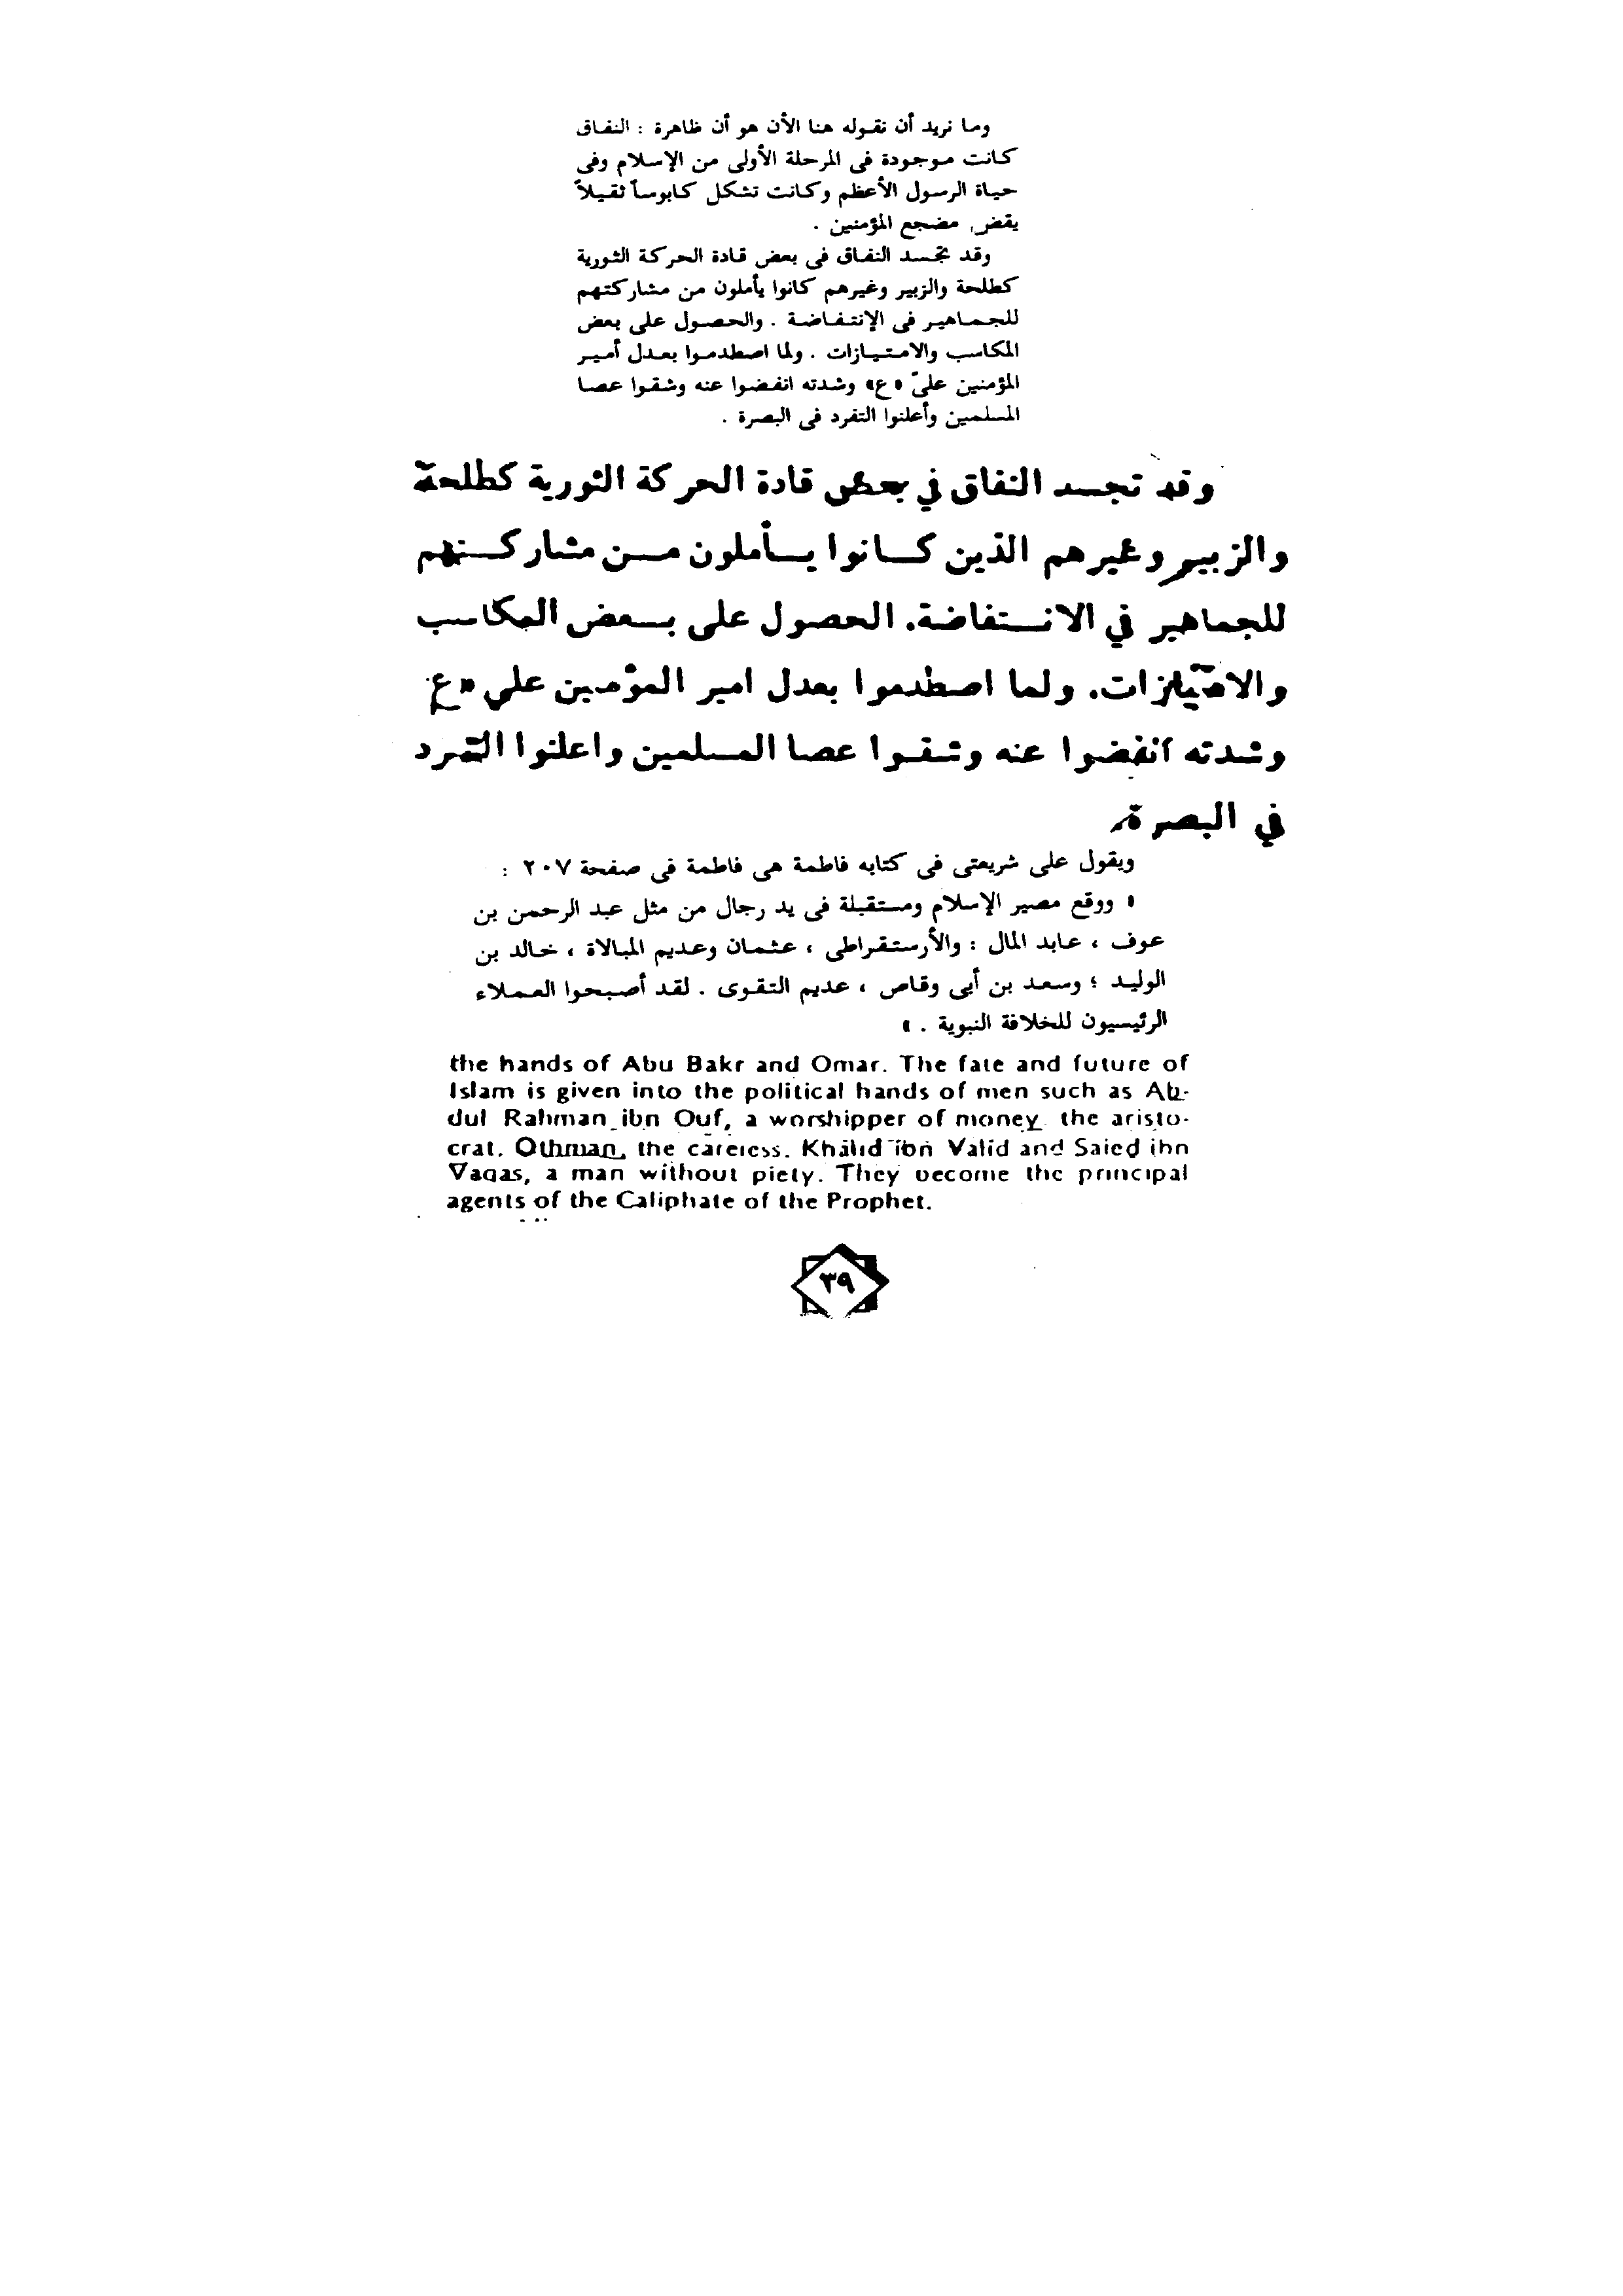 وما نريد أن نقوله هنا الأن هو أن ظاهرة : النفاق
كانت موجودة فى المرحلة الأولى من الإسلام وفى
حياة الرسول الأعظم وكانت تشكل كابوساً ثقيلاً
يقض مضجع المؤمنين .
وقد تجسد النفاق فى بعض قادة الحركة الثورية
كطلحة والزبير وغيرهم كانوا يأملون من مشاركتهم
للجماهير فى الإنتفاضة . والحصول على بعض
المكاسب والامتيازات . ولما اصطدموا بعدل أمير
المؤمنين علىّ «ع» وشدته انفضوا عنه وشقوا عصا
المسلمين وأعلنوا التفرد فى البصرة .
وقد تجسد النفاق في بعض قادة الحركة الثورية كطلحة
والزبير وغيرهم الذين كانوا يأملون من مشاركتهم
للجماهير في الانتفاضة. الحصول على بعض المكاسب
والامتيازات. ولما اصطدموا بعدل امير المؤمنين علي «ع
وشدته انفضوا عنه وشقوا عصا المسلمين واعلنوا التمرد
في البصرة
ويقول على شريعتى فى كتابه فاطمة هى فاطمة فى صفحة ٢٠٧ :
« ووقع مصير الإسلام ومستقبلة فى يد رجال من مثل عبد الرحمن بن
عوف ، عابد المال : والأرستقراطى ، عثمان وعديم المبالاة ، خالد بن
الوليد ؛ وسعد بن أبى وقاص ، عديم التقوى . لقد أصبحوا العملاء
الرئيسيون للخلافة النبوية . »
the hands of Abu Bakr and Omar. The fate and future of
Islam is given into the political hands of men such as Ab-
dul Rahman ibn Ouf, a worshipper of money the aristo-
crat. Othman, the careless. Khalid ibn Valid and Saied ibn
Vaqas, a man without piety. They become the principal
agents of the Caliphate of the Prophet.
٣٩